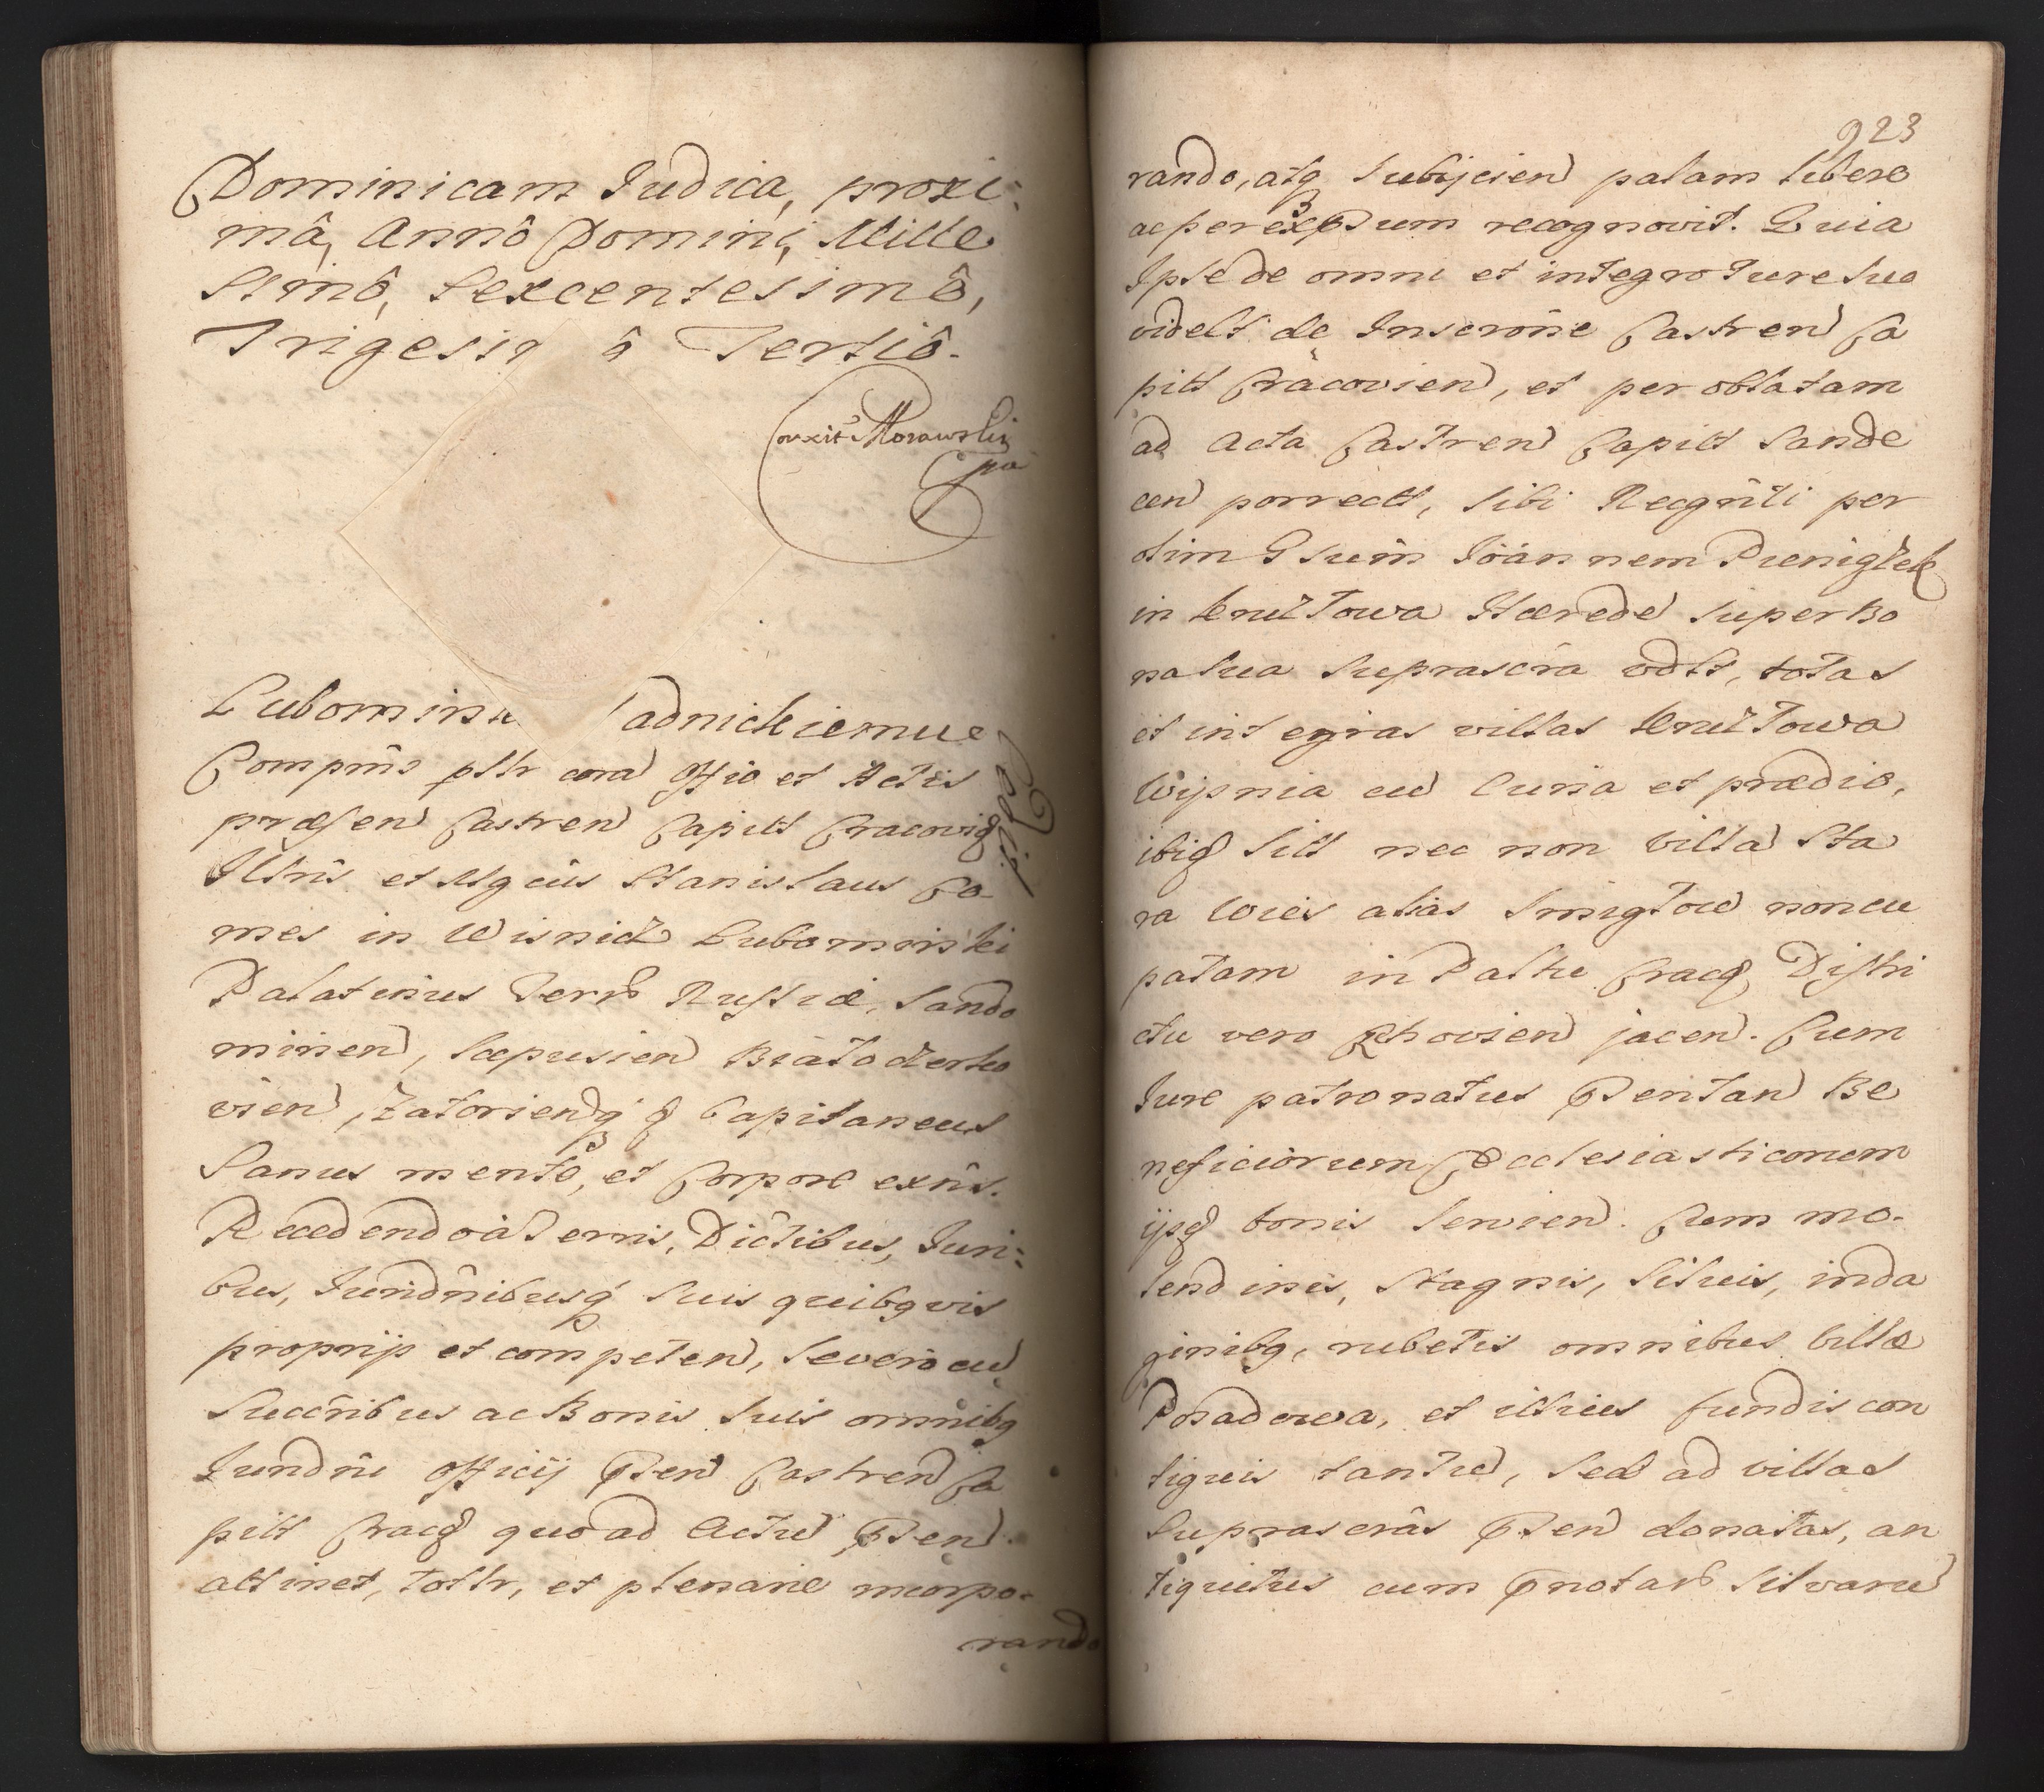 Dominicam Judica, proxi:
mâ, Annô Domini, Mille
simô, Sexcentesimô,
Trigesi ô Tertiô.
Morawski
Lubomirs adnickiemu
Comprñs pltr cora Offio et Actis
præsen Castren Capitt Cracovig
Illris et Mgcus Stanislaus Co-
mes in Wisnicz Lubomirski
Palatinus Terr Russiæ, Sando
mirien, Scepusien Białocerko
vien, Zatoriensq Capitaneus
Sanus mente, et Corpore exñs.
Recedendo à Terris, Dictibus, Juri:
bus, Jurdñibusq suis quibqvis
proprijs et competen, Se vero cu
Succribus ac Bonis suis omnibq
Jurdñi Officij Psen Castren Ca
pitt Cracg quo ad Actu Psen
attinet, tottr, et plenarie incorpo-
rando
923
rando, atq subijcien palam libere
ac per expssum recognovit. Quia
Ipse de omni et integro Jure suo
videlt de Inscrõne Castren Ca
pitt Cracovien, et per oblatam
ad Acta Castren Capitt Sande
cen porrectt, Sibi Recgñti per
olim Gsum Joannem Pieniążek
in Kruzlowa Hærede super Bo
na sua suprascra vdlt, totas
et integras villas Kruzlowa
Wyżnia cu Curia et prædio,
ibiq sitt nec non villa Sta
ra Wies alias nuncu
patam in Paltu Cracg Distri
ctu vero jacen. Cum
Jure patronatus Psentan Be
neficiorum Ecclesiasticorum
ijsq bonis servien. Cum mo-
lendinis, Stagnis, Silvis, inda
ginibq, rubetis omnibus villæ
Posadowa, et illius fundis con
tiguis tantu, sed ad villas
Suprascrâs Psen donatas, an
tiquitus cum Pnotar Silvaru